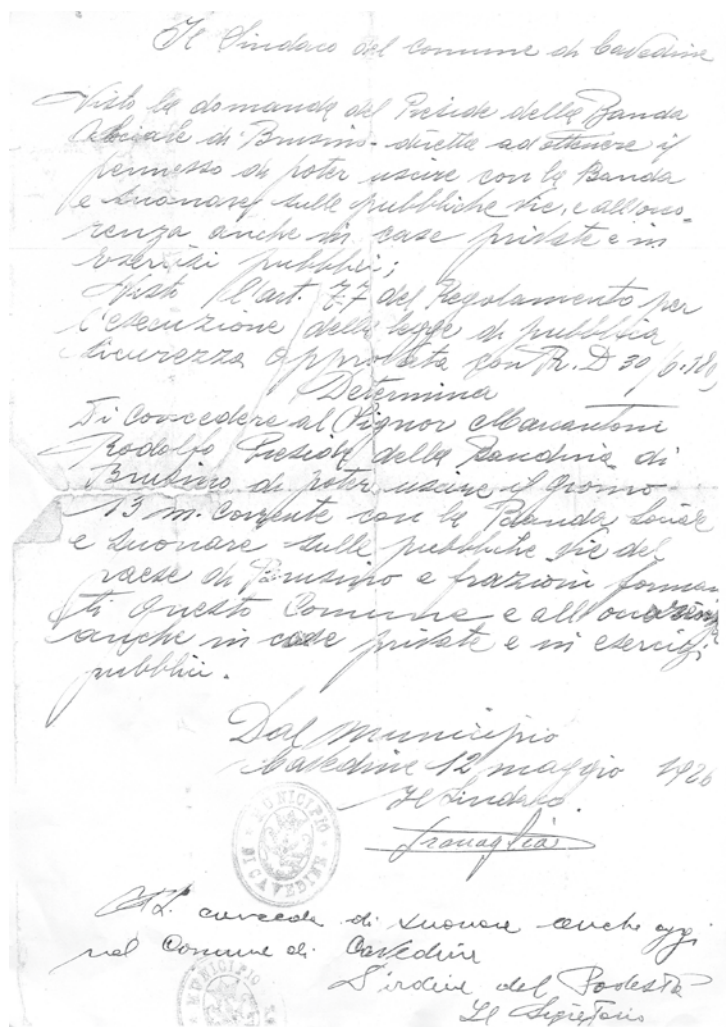 Il Sindaco del Comune di Cavedine
Visto la domanda del Preside della Banda
Sociale di Brusino diretta ad ottenere il
permesso di poter uscire con la Banda
e suonare sulle pubbliche vie, e all'occo-
renza anche in case private e in
esercizi pubblici;
Visto l'art. 77 del Regolamento per
l'esecuzione della legge di pubblica
sicurezza approvata con R. D 30/6.189
Determina
Di concedere al Signor
Rodolfo Preside della Bandina di
Brusino di poter uscire il giorno
13 m. corrente con la Banda Sociale
e suonare sulle pubbliche vie del
paese di Brusino e frazioni forman
ti questo Comune e all'occorenza
anche in case private e in esercizi
pubblici.
Dal Municipio
Cavedine 12 maggio 1926
Il Sindaco
Travaglia
MUNICIPIO DI CAVEDINE
Si concede di suonare anche oggi
nel Comune di Cavedine
D'ordine del Podestà
Il Segretario
MUNICIPIO